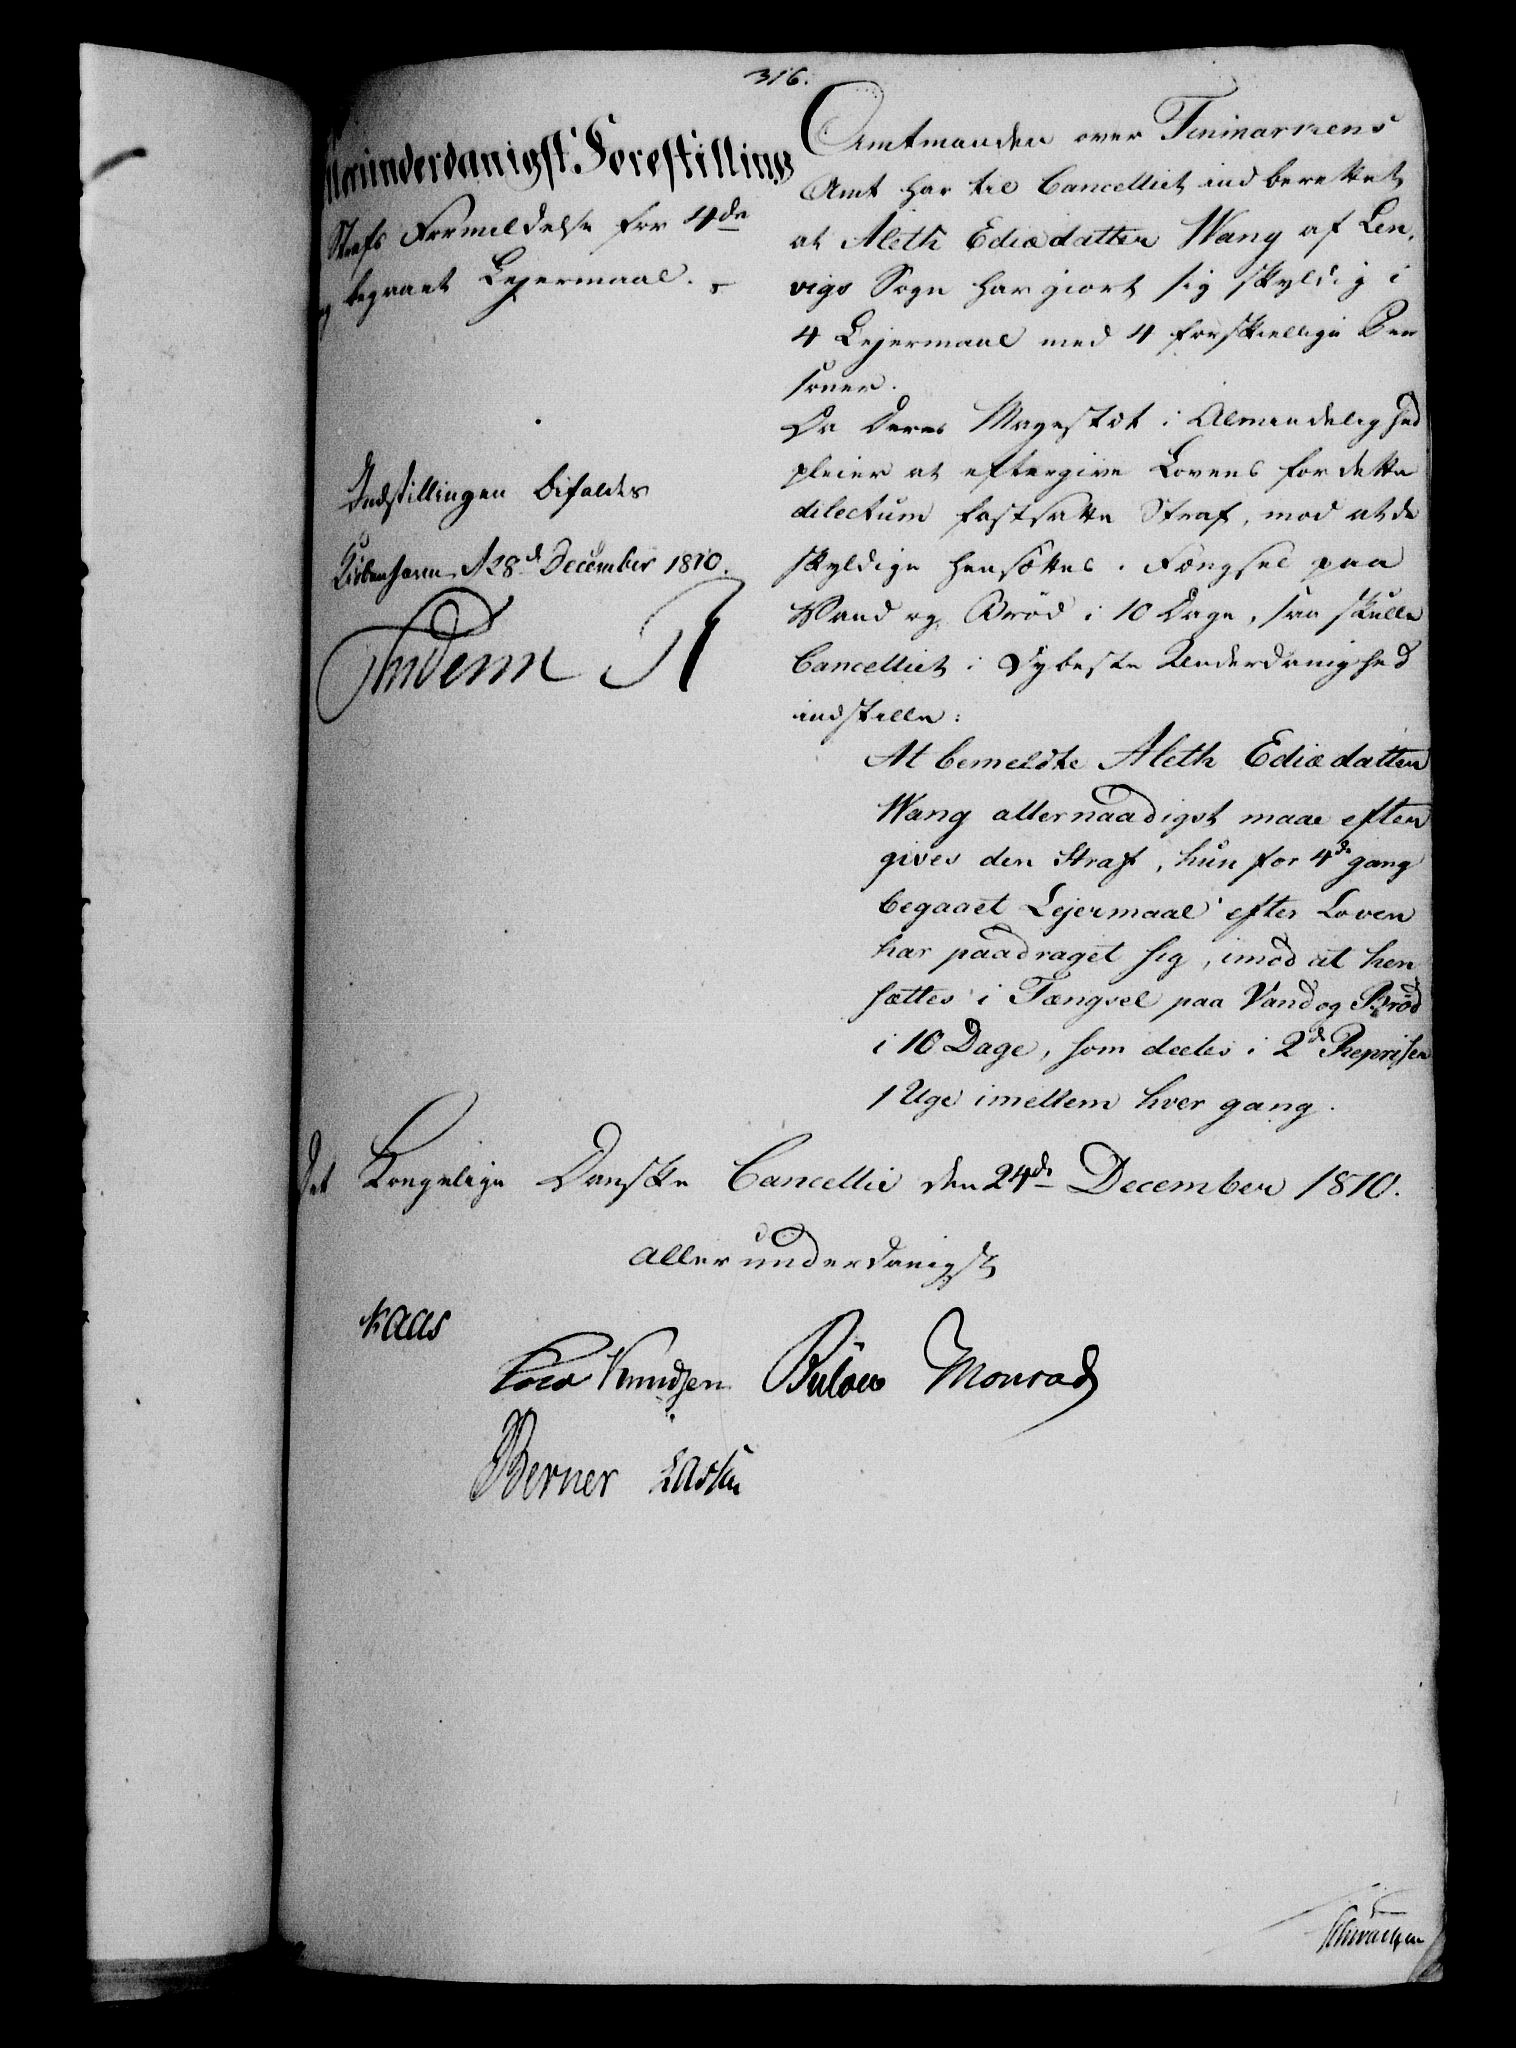 316.
Allerunderdanigst Forestilling
Strafs Formildelse for 4de
begaaet Lejermaal.
Indstillingen bifaldes
Kiøbenhavn d 28de December 1810.
Friderich R
Amtmanden over Finmarkens
Amt har til Cancelliet indberettet
at Aleth Ediædatter Wang af Len,
vigs Sogn har giort sig skyldig i
4 Lejermaal med 4 forskiellige Per
soner.
Da Deres Majestæt i Almindelighed
pleier at eftergive Lovens for dette
delictum fastsatte Straf, mod at de
skyldige hensættes i Fængsel paa
Vand og Brød i 10 Dage, saa skulle
Cancelliet i dybeste Underdanighed
indstille:
At bemeldte Aleth Ediædatter
Wang allernaadigst maae efter
gives den Straf, hun for 4de gang
begaaet Lejermaal efter Loven
har paadraget sig, imod at hen
sættes i Fængsel paa Vand og Brød
i 10 Dage, som deeles i 2de Repriser
1 Uge imellem hver gang.
Det Kongelige Danske Cancellie den 24de December 1810.
allerunderdanigst
Kaas
Knudsen Bülow Monrad
Berner Lassen